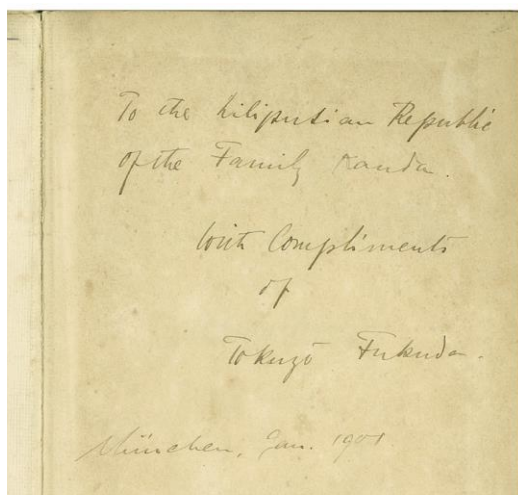 To the Liliputian Republic
of the Family Kanda.
With Compliments
of
Tokuzō Fukuda.
München, Jan. 1901